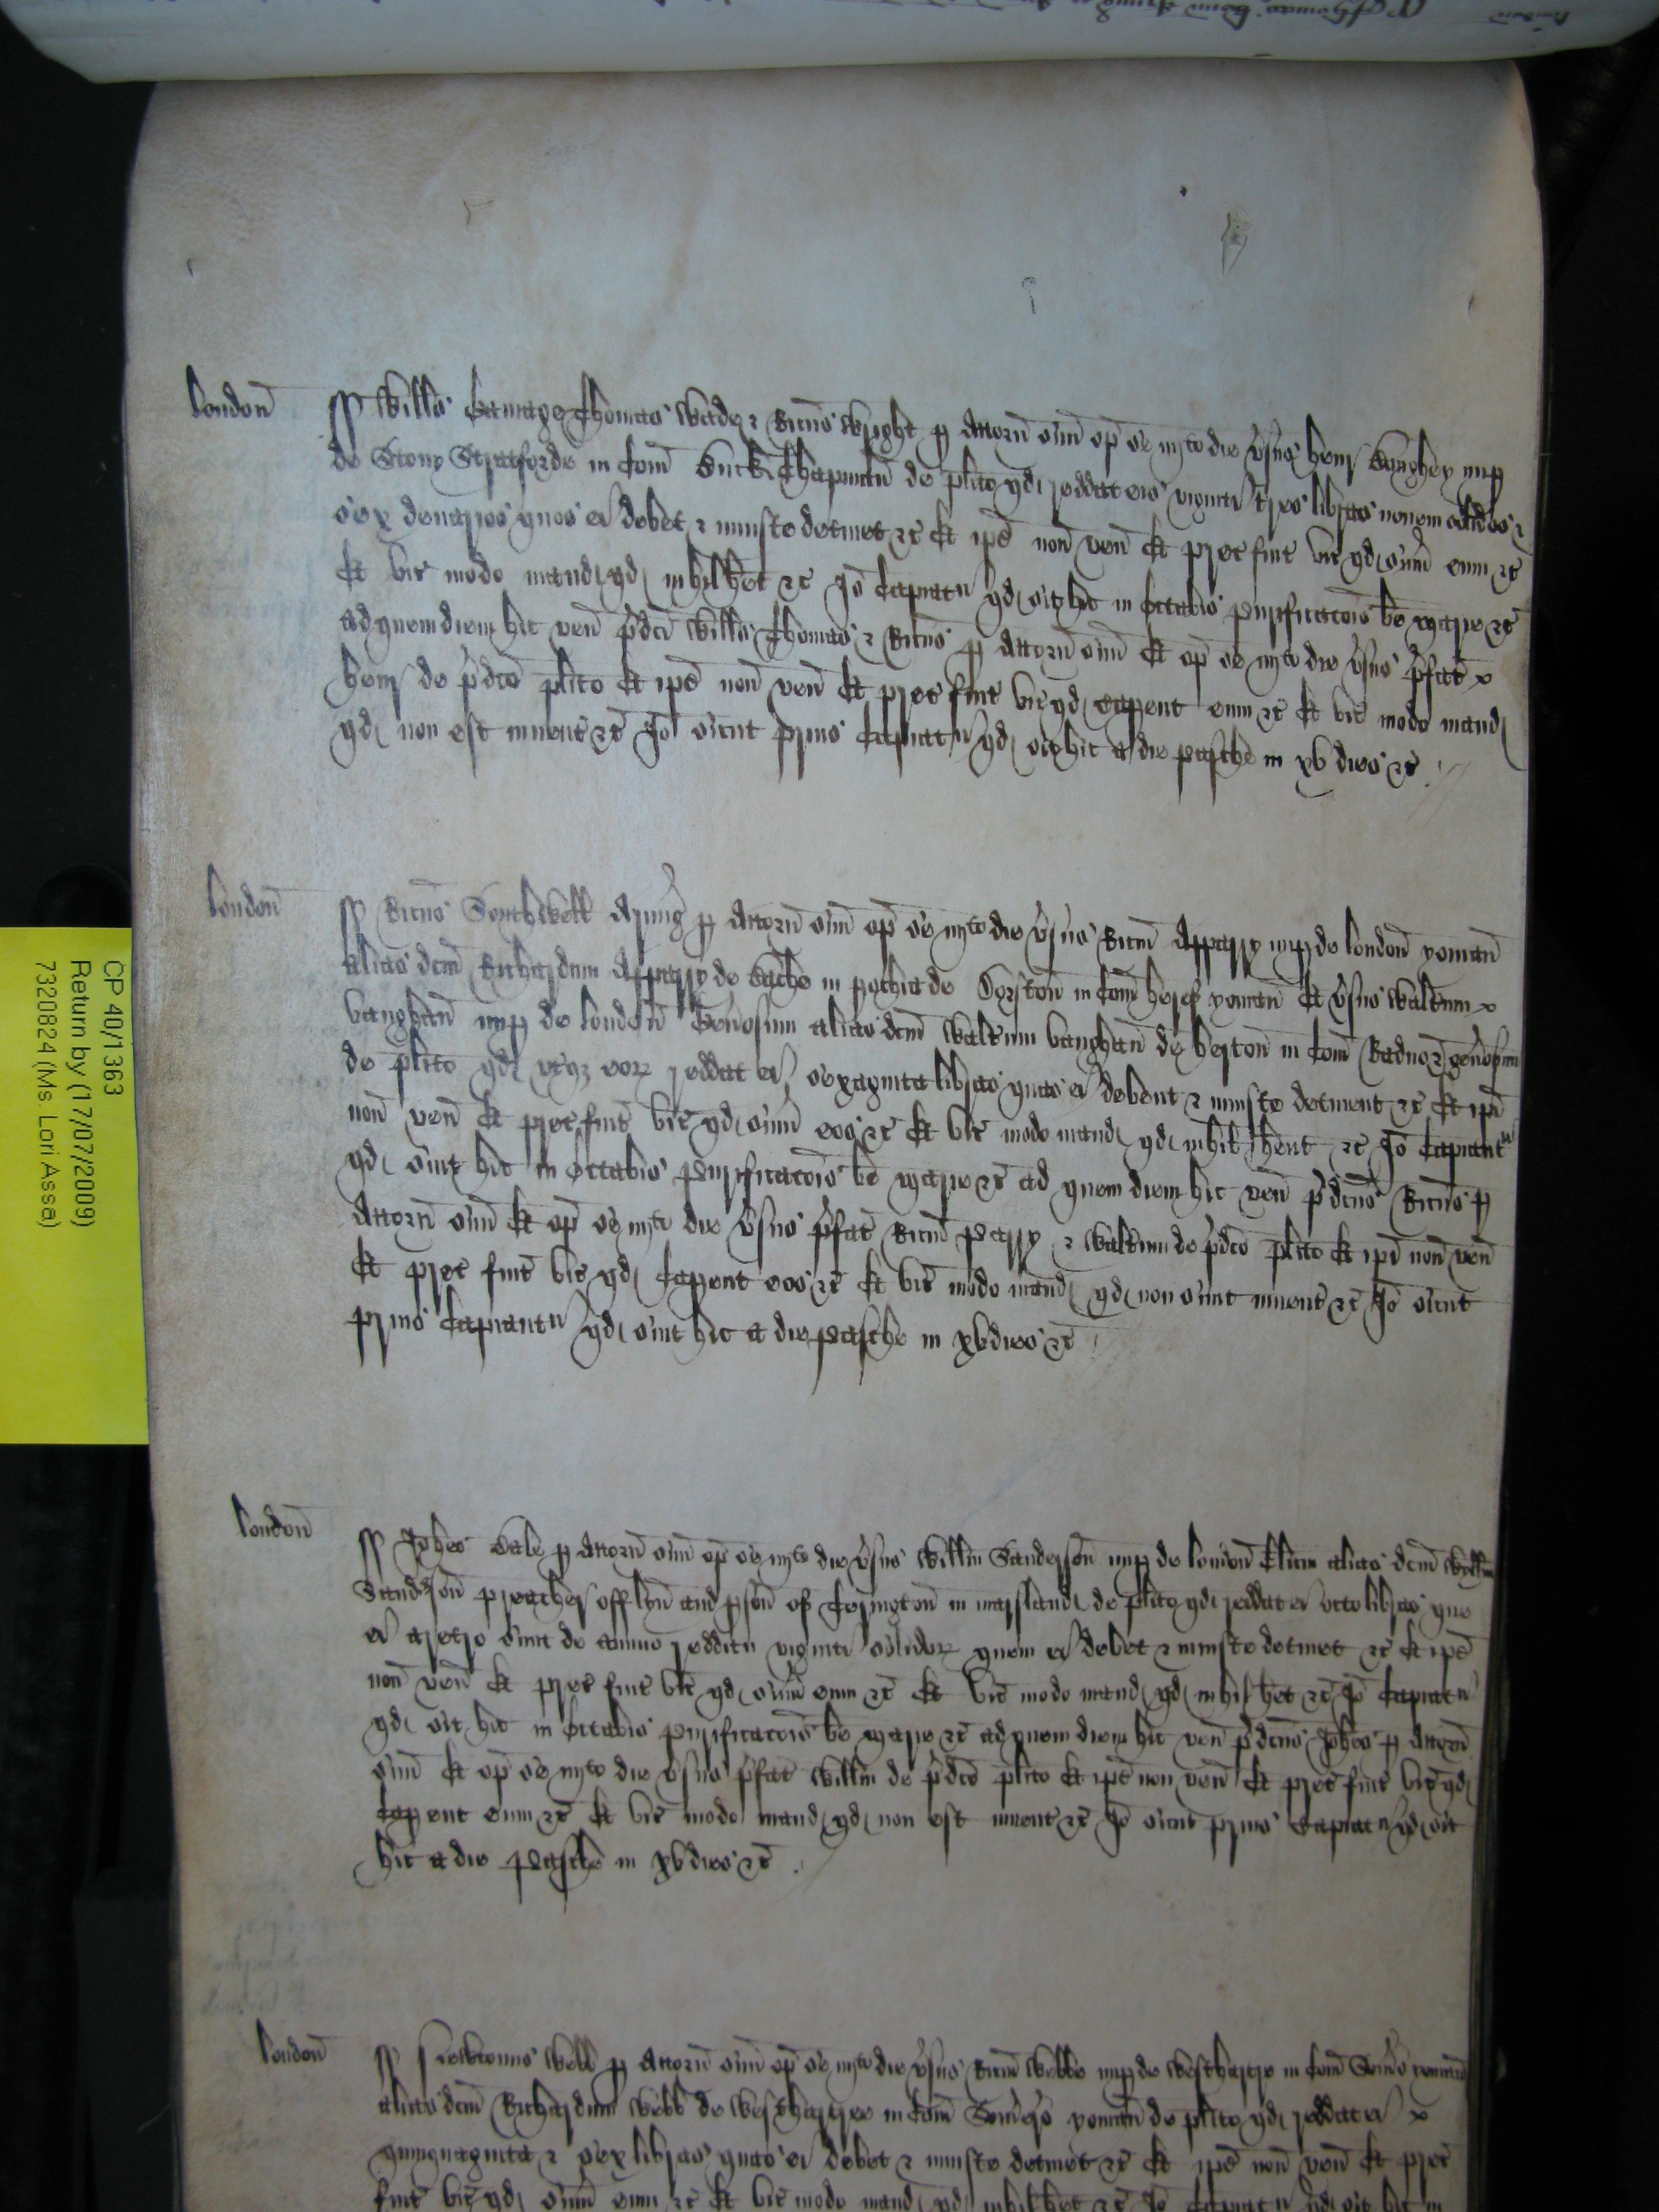 london
Willūs Gamage Thomas Wade & Ricūs Wryght p attorn suū op se iiijto die v̄sus henr nup
de Stony Stratforde in Com̄ Buck Chapman de plito qd reddat eis viginti tres libras novem solidos &
sex denarios quos ei debet & iniuste detinet &c̄ Et ip̄e non ven Et prec̄ fuit vic̄ qd sum̄ eum &c̄
Et vic̄ modo mand qd nihil het &c̄ Io Capiat qd sit hic in Octabis Purificacōis be marie &c̄
ad quem diem hic ven p̄dc̄i Willūs Thomas & Ricūs p attorn suū Et op se iiijto die v̄sus p̄fat
henr de p̄dc̄o plito Et ip̄e non ven Et prec̄ fuit vic̄ qd capent eum &c̄ Et vic̄ modo mand
qd non est invent &c̄ Io sicut prius Capiat qd sit hic a die pasche in xv dies &c̄
london
Ricūs Southwell Armig p attorn suū op se iiijto die v̄sus Ricūm Apparry nup de london yoman
alias dc̄m Richardum Apparry de in pochia de in Com̄ heref yoman Et v̄sus Walt̄um
vaughan nup de london Gen̄osum alias dc̄m Walt̄um vaughan de in Com̄ Radnor gen̄osum
de plito qd utq̄ eoꝝ reddat ei sexaginta libras quas ei debent & iniuste detinent &c̄ Et ip̄i
non ven Et prec̄ fuit vic̄ qd sum̄ eos &c̄ Et vic̄ modo mand qd nihil hent &c̄ Io Capiant
qd sint hic in Octabis Purificacōis be marie &c̄ ad quem diem hic ven p̄dc̄us Ricūs p
attorn suū Et op se iiijto die v̄sus p̄fat Ricūm Parry & Walt̄um de p̄dc̄o plito Et ip̄i non ven
Et prec̄ fuit vic̄ qd Capent eos &c̄ Et vic̄ modo mand qd non sunt invent &c̄ Io sicut
prius Capiant qd sint hic a die pasche in xv dies &c̄
london
Joh̄es Gale p attorn suū op se iiijto die v̄sus Willm̄ Sanderson nup de london Clicum alias dc̄m Willm̄
Sanderson preacher off lyn and pson of in marsland de plito qd reddat ei octo libras que
ei aretro sunt de annuo redditu viginti solidoꝝ quem ei debet & iniuste detinet &c̄ Et ip̄e
non ven Et prec̄ fuit vic̄ qd sum̄ eum &c̄ Et vic̄ modo mand qd nihil het &c̄ Io Capiat
qd sit hic in Octabis Purificacōis be marie &c̄ ad quem diem hic ven p̄dc̄us Joh̄es p attorn
suū Et op se iiijto die v̄sus p̄fat Willm̄ de p̄dc̄o plito Et ip̄e non ven Et prec̄ fuit vic̄ qd
capent eum &c̄ Et vic̄ modo mand qd non est invent &c̄ Io sicut prius Capiat qd sit
hic a die Pasche in xv dies &c̄
london
Well p attorn suū op se iiijto die v̄sus Ricūm Webbe nup de Westharpre in Com̄ yoman
alias dc̄m Richardum Webb de Westharpree in Com̄ yoman de plito qd reddat ei
quinquaginta & sex libras quas ei debet & iniuste detinet &c̄ Et ip̄e non ven Et prec̄
fuit vic̄ qd sum̄ eum &c̄ Et vic̄ modo mand qd nihil het &c̄ Io Capiat qd sit hic in
CP 40/1363
Return by (17/07/2009)
7320824 (Ms. Lori Assa)